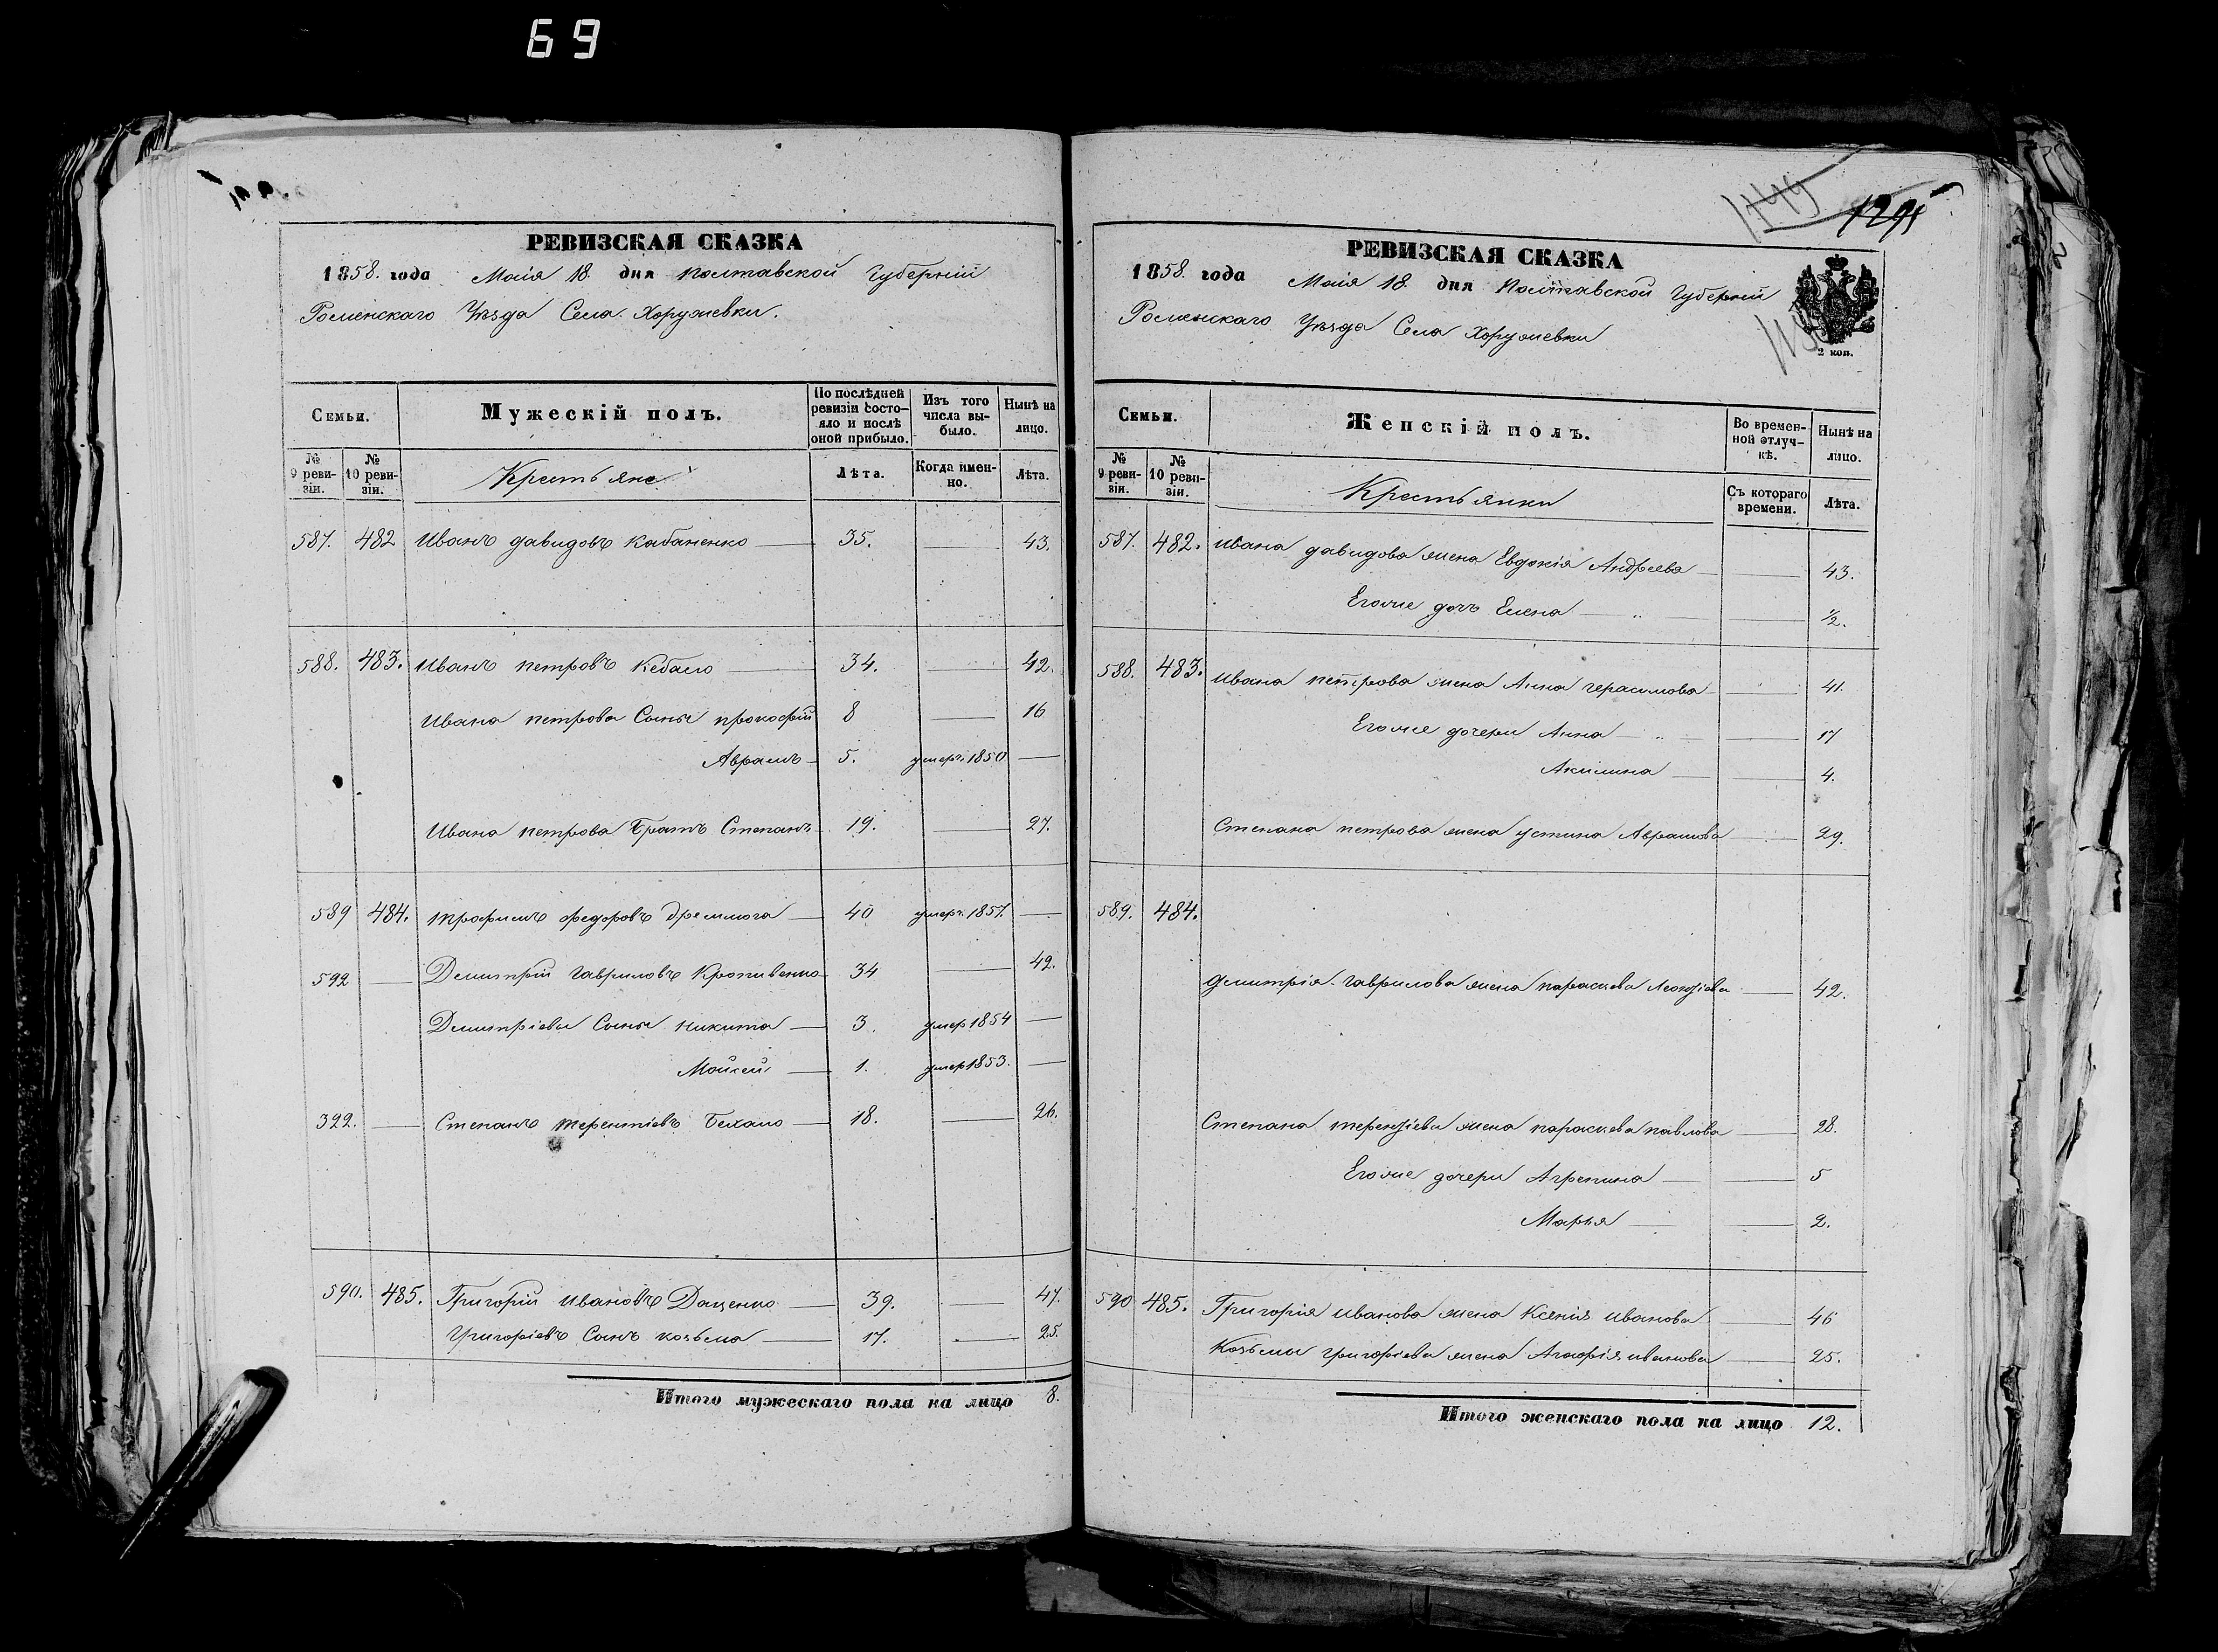 69
РЕВИЗСКАЯ СКАЗКА
1858. года Маія 18. дня Полтавской Губерніи
Роменскаго Уѣзда Села Хоружевки.
Семьи.
Мужескій полъ.
По послѣдней ревизіи состояло и послѣ оной прибыло.
Изъ того числа выбыло.
Нынѣ на лицо.
№ 9 ревизіи.
№ 10 ревизіи.
Крестьяне
Лѣта.
Когда именно.
Лѣта.
587. 482 Иванъ давидовъ Кабаненко 35. 43.
588. 483. Иванъ петровъ Кебало 34. 42.
Ивана петрова Сыны прокофій 8 16
Аврамъ 5. умеръ 1850
Ивана петрова Братъ Степанъ 19. 27.
589 484. трофимъ федоровъ дремлюга 40 умеръ 1857.
592 Димитрій Гавриловъ Кропивенко 34 42.
Димитріевы Сыны никита 3. умер 1854
Мойсей 1. умер 1853.
322. Степанъ терентіевъ Бехало 18. 26.
590. 485. Григорій ивановъ Даценко 39. 47.
Григоріевъ Сынъ козьма 17. 25.
Итого мужескаго пола на лицо 8.
1295
РЕВИЗСКАЯ СКАЗКА
1858. года Маія 18. дня Полтавской Губерніи
Роменскаго Уѣзда Села Хоружевки
2 коп.
Семьи.
Женскій полъ.
Во временной отлучкѣ.
Нынѣ на лицо.
№ 9 ревизіи.
№ 10 ревизіи.
Крестьянки
Съ котораго времени.
Лѣта.
587. 482. Ивана давидова жена Евдокія Андреева 43.
Егоже дочь Елена 1/2.
588. 483. Ивана петрова жена Анна герасимова 41.
Егоже дочери Анна 17
Акилина 4.
Степана петрова жена устина Аврамова 29.
589. 484.
Димитрія Гаврилова жена параскева 42.
Степана терентіева жена параскева павлова 28.
Егоже дочери Агрепина 5
Марья 2.
590 485. Григорія иванова жена Ксенія иванова 46
Козьмы григоріева жена Агафія иванова 25.
Итого женскаго пола на лицо 12.